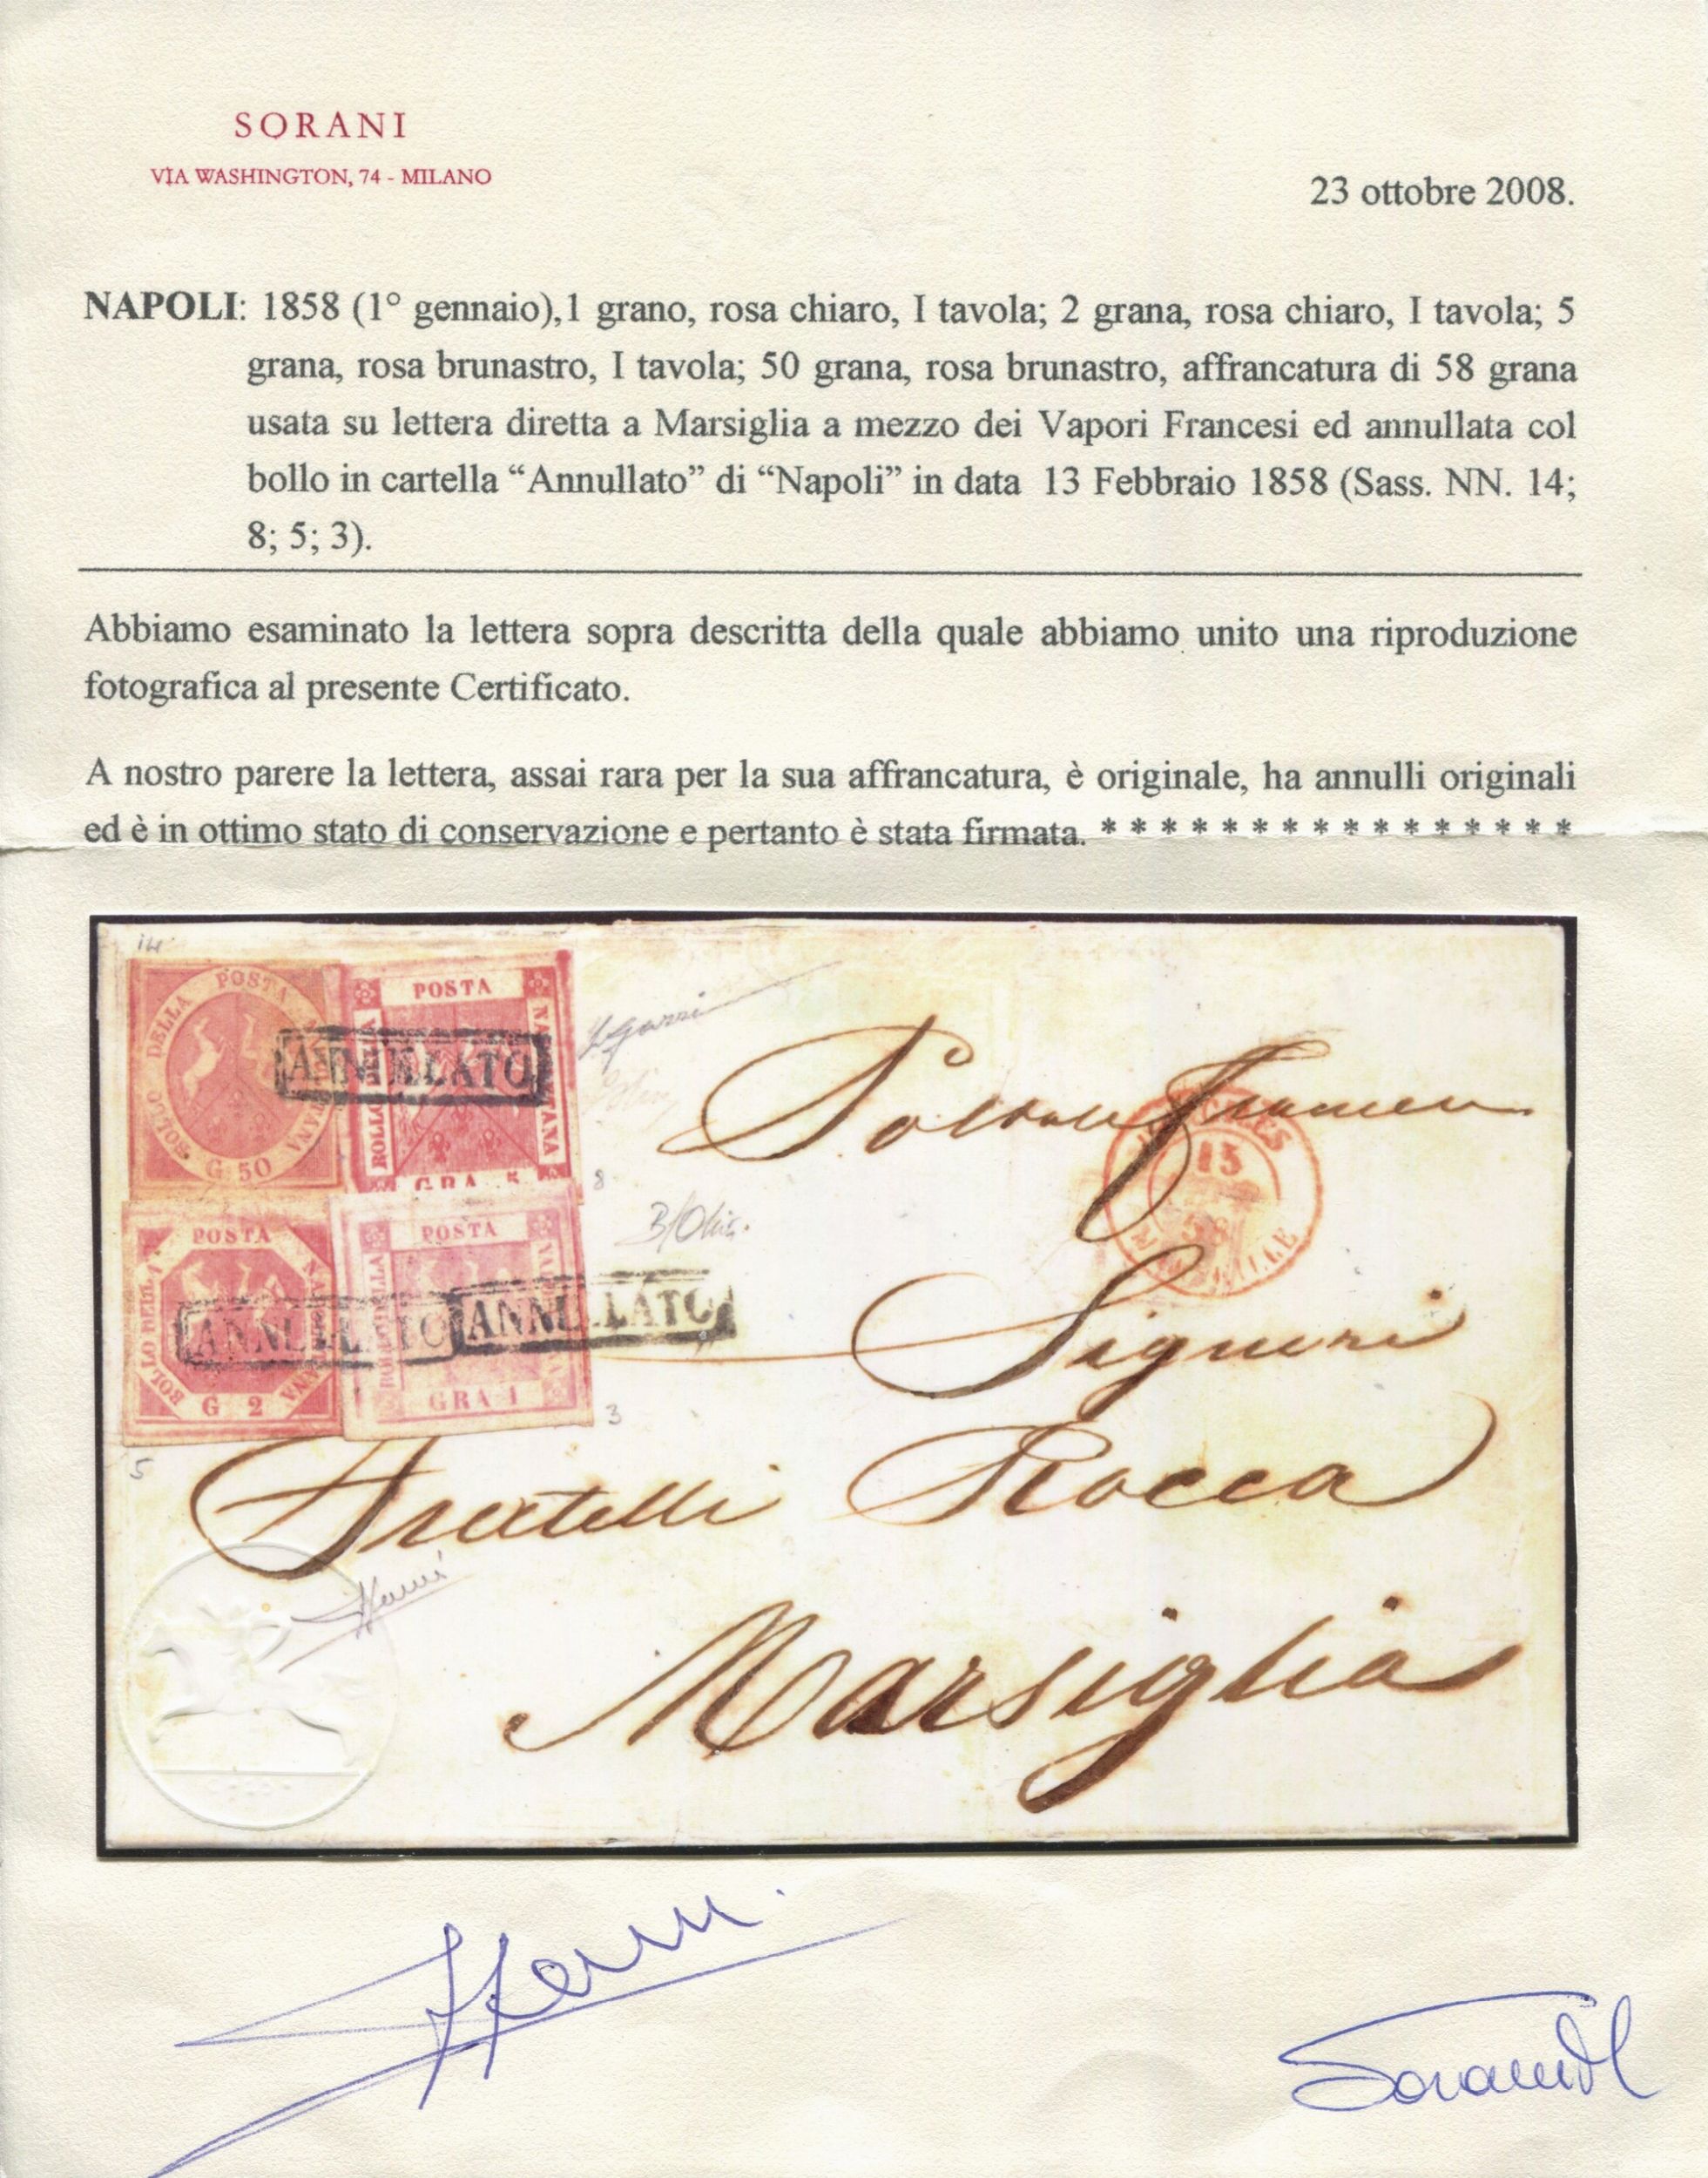 SORANI
VIA WASHINGTON, 74 - MILANO
23 ottobre 2008.
NAPOLI: 1858 (1° gennaio),1 grano, rosa chiaro, I tavola; 2 grana, rosa chiaro, I tavola; 5
grana, rosa brunastro, I tavola; 50 grana, rosa brunastro, affrancatura di 58 grana
usata su lettera diretta a Marsiglia a mezzo dei Vapori Francesi ed annullata col
bollo in cartella “Annullato” di “Napoli” in data 13 Febbraio 1858 (Sass. NN. 14;
8; 5; 3).
Abbiamo esaminato la lettera sopra descritta della quale abbiamo unito una riproduzione
fotografica al presente Certificato.
A nostro parere la lettera, assai rara per la sua affrancatura, è originale, ha annulli originali
ed è in ottimo stato di conservazione e pertanto è stata firmata. * * * * * * * * * * * * * * * *
14
BOLLO DELLA POSTA NAPOLETANA
G 50
POSTA
BOLLO DELLA
NAPOLETANA
GRA 5
ANNULLATO
8
15
58
POSTA
BOLLO DELLA
G 2
POSTA
GRA 1
ANNULLATO
ANNULLATO
3
5
Signori
Fratelli Rocca
Marsiglia